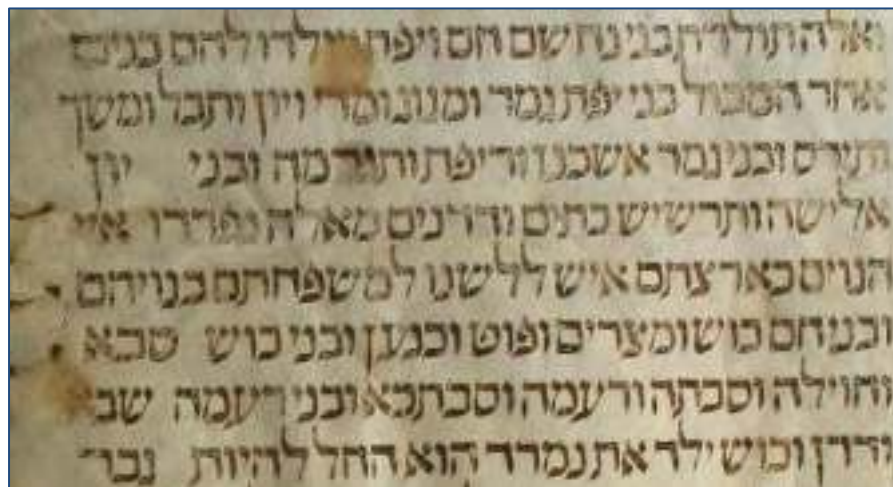 ואלה תולדת בני נח שם חם ויפת ויולדו להם בנים
אחר המבול בני יפת גמר ומגוג ומדי ויון ותבל ומשך
ותירס ובני גמר אשכנז וריפת ותגרמה ובני יון
אלישה ותרשיש כתים ודדנים מאלה נפרדו איי
הגוים בארצתם איש ללשנו למשפחתם בגויהם
ובני חם כוש ומצרים ופוט וכנען ובני כוש סבא
וחוילה וסבתה ורעמה וסבתכא ובני רעמה שבא
ודדן וכוש ילד את נמרד הוא החל להיות גבר